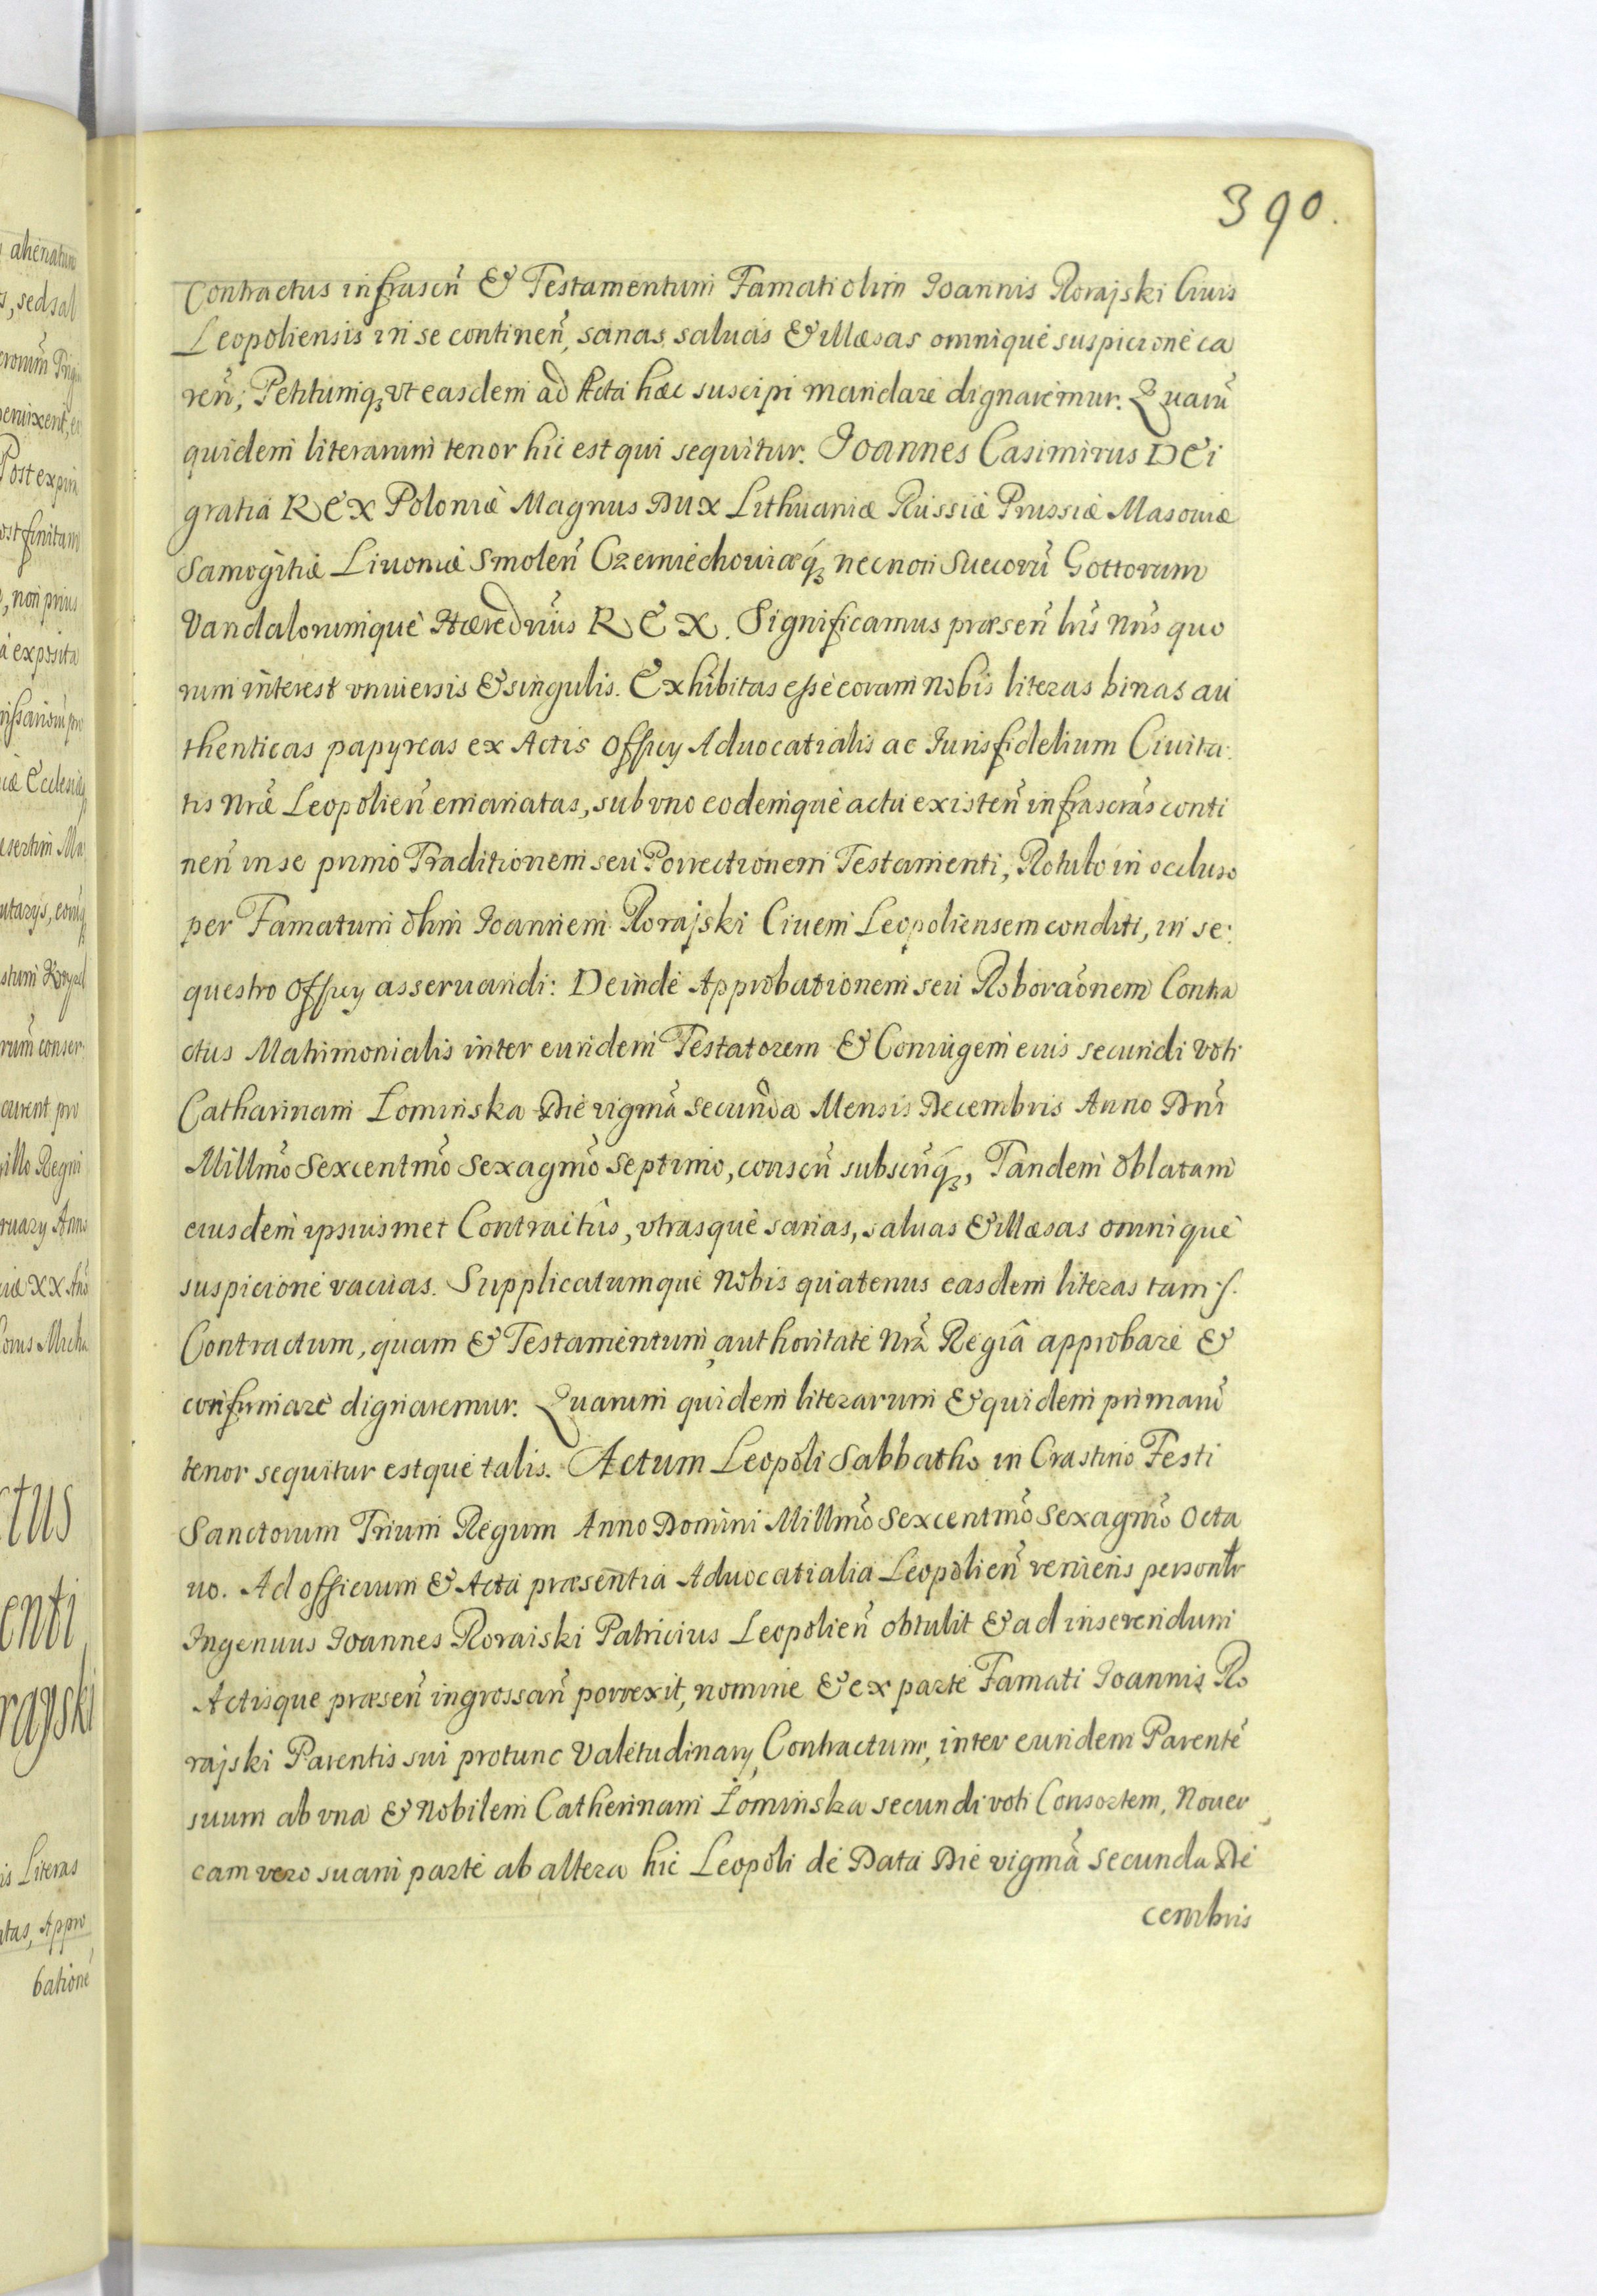 390.
Contractus infrascrn̄ & Testamentum Famati olim Joannis Rorajski Civis
Leopoliensis in se continen̄, sanas, saluas & illæsas omnique suspicione ca
ren̄; Petitumq₃ vt easdem ad Acta hæc suscipi mandare dignaremur. Quarū
quidem literarum tenor hic est qui sequitur. Joannes Casimirus DEi
gratia REX Poloniæ Magnus Dux Lithuaniæ Russiæ Prussiæ Masouiæ
Samogitiæ Liuoniæ Smolen̄ Czerniechouiæq₃ necnon Suecorū Gottorum
Vandalorumque Hæredrius REX. Significamus præsen̄ lris nris quo
rum interest vniuersis & singulis. Exhibitas esse coram nobis literas binas au
thenticas papyreas ex Actis Officij Aduocatialis ac Jurisfidelium Ciuita:
tis nræ Leopolien̄ emanatas, sub vno eodemque actu existen̄ infrascras conti
nen̄ in se primo Traditionem seu Porrectionem Testamenti, Rotulo in occluso
per Famatum olim Joannem Rorajski Ciuem Leopoliensem conditi, in se:
questro Officij asseruandi: Deinde Approbationem seu Roboraōnem Contra
ctus Matrimonialis inter eundem Testatorem & Coniugem eius secundi voti
Catharinam Łomińska Die vigmā secunda Mensis Decembris Anno Dni
Millmō Sexcentmō Sexagmō Septimo, conscn̄ subscn̄q₃, Tandem oblatam
eiusdem ipsiusmet Contractûs, vtrasque sanas, saluas & illæsas omnique
suspicione vacuas. Supplicatumque nobis quatenus easdem literas tam s.
Contractum, quam & Testamentum authoritate nrā Regiâ approbare &
confirmare dignaremur. Quarum quidem literarum & quidem primarū
tenor sequitur estque talis. Actum Leopoli Sabbatho in Crastino Festi
Sanctorum Trium Regum Anno Domini Millmō Sexcentmō Sexagmō Octa
uo. Ad officium & Acta præsentia Aduocatialia Leopolien̄ veniens personlr
Ingenuus Joannes Roraiski Patricius Leopolien̄ obtulit & ad inserendum
Actisque præsen̄ ingrossan̄ porrexit, nomine & ex parte Famati Joannis Ro
rajski Parentis sui protunc valetudinarij, Contractum, inter eundem Parentē
suum ab vna & Nobilem Catherinam Łomińska secundi voti Consortem, Nouer
cam vero suam parte ab altera hic Leopoli de Data Die vigmā secunda De
cembris